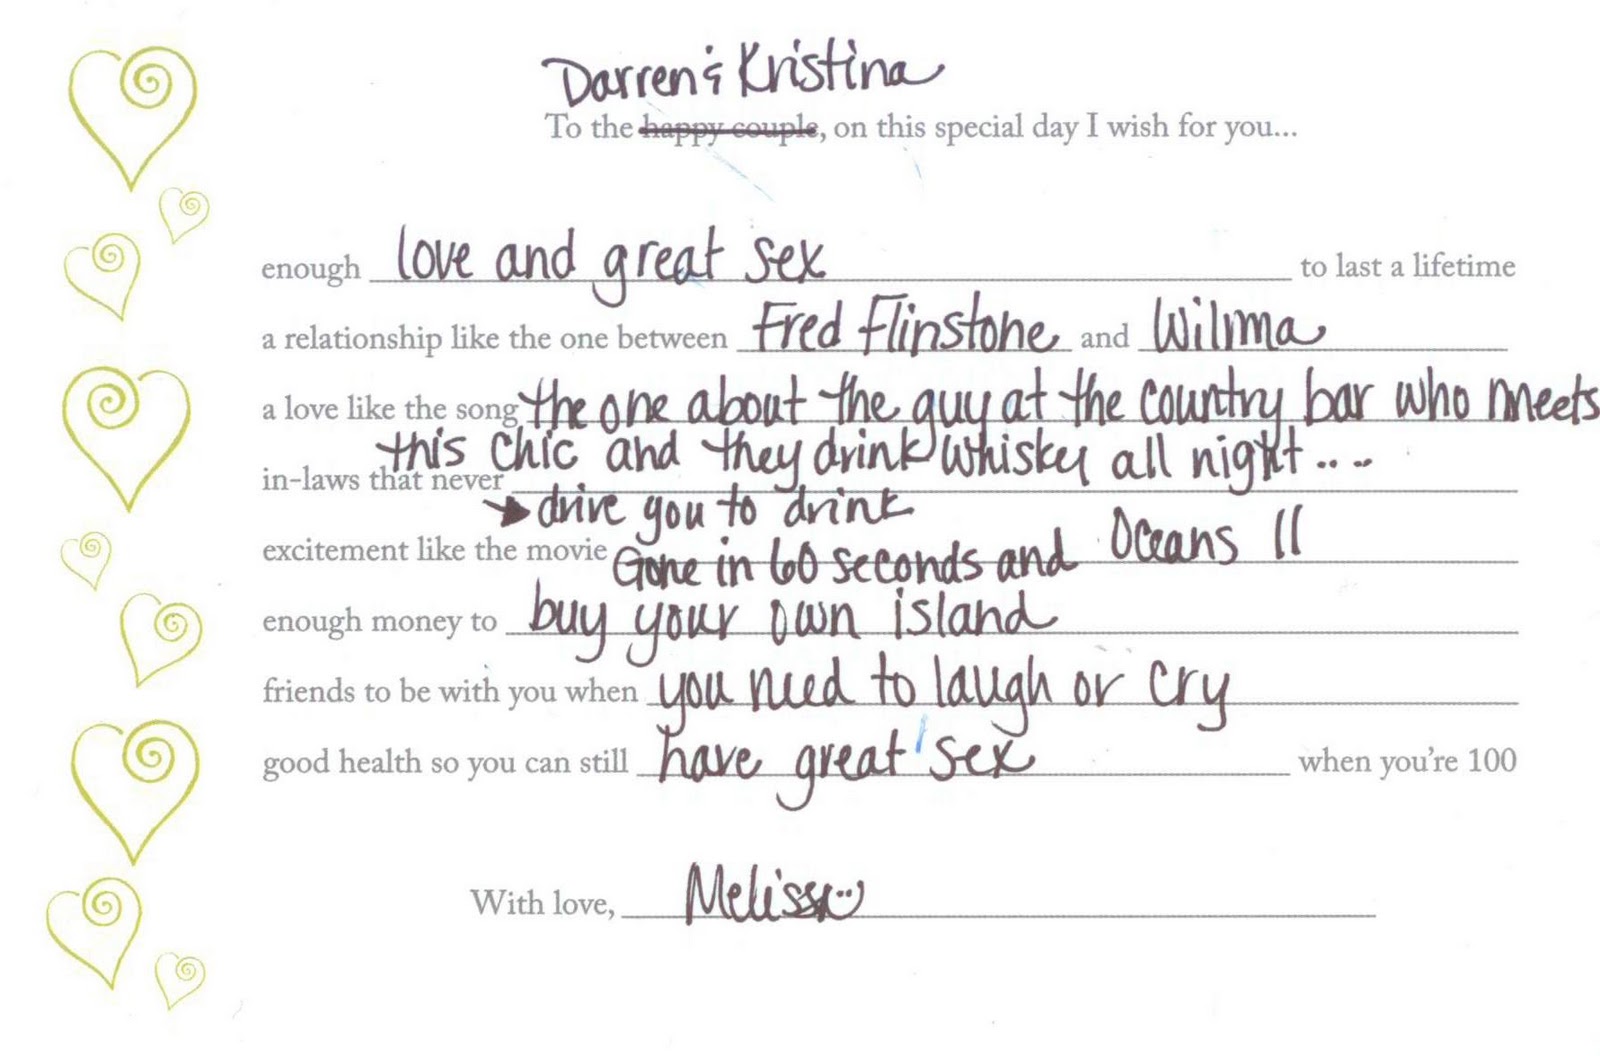 Darren & Kristina
To the happy couple, on this special day I wish for you...
enough love and great sex to last a lifetime
a relationship like the one between Fred Flinstone and Wilma
a love like the song the one about the guy at the country bar who meets
this chic and they drink whiskey all night....
in-laws that never
drive you to drink
excitement like the movie Gone in 60 seconds and Oceans 11
enough money to buy your own island
friends to be with you when you need to laugh or cry
good health so you can still have great sex when you're 100
With love, Melissa